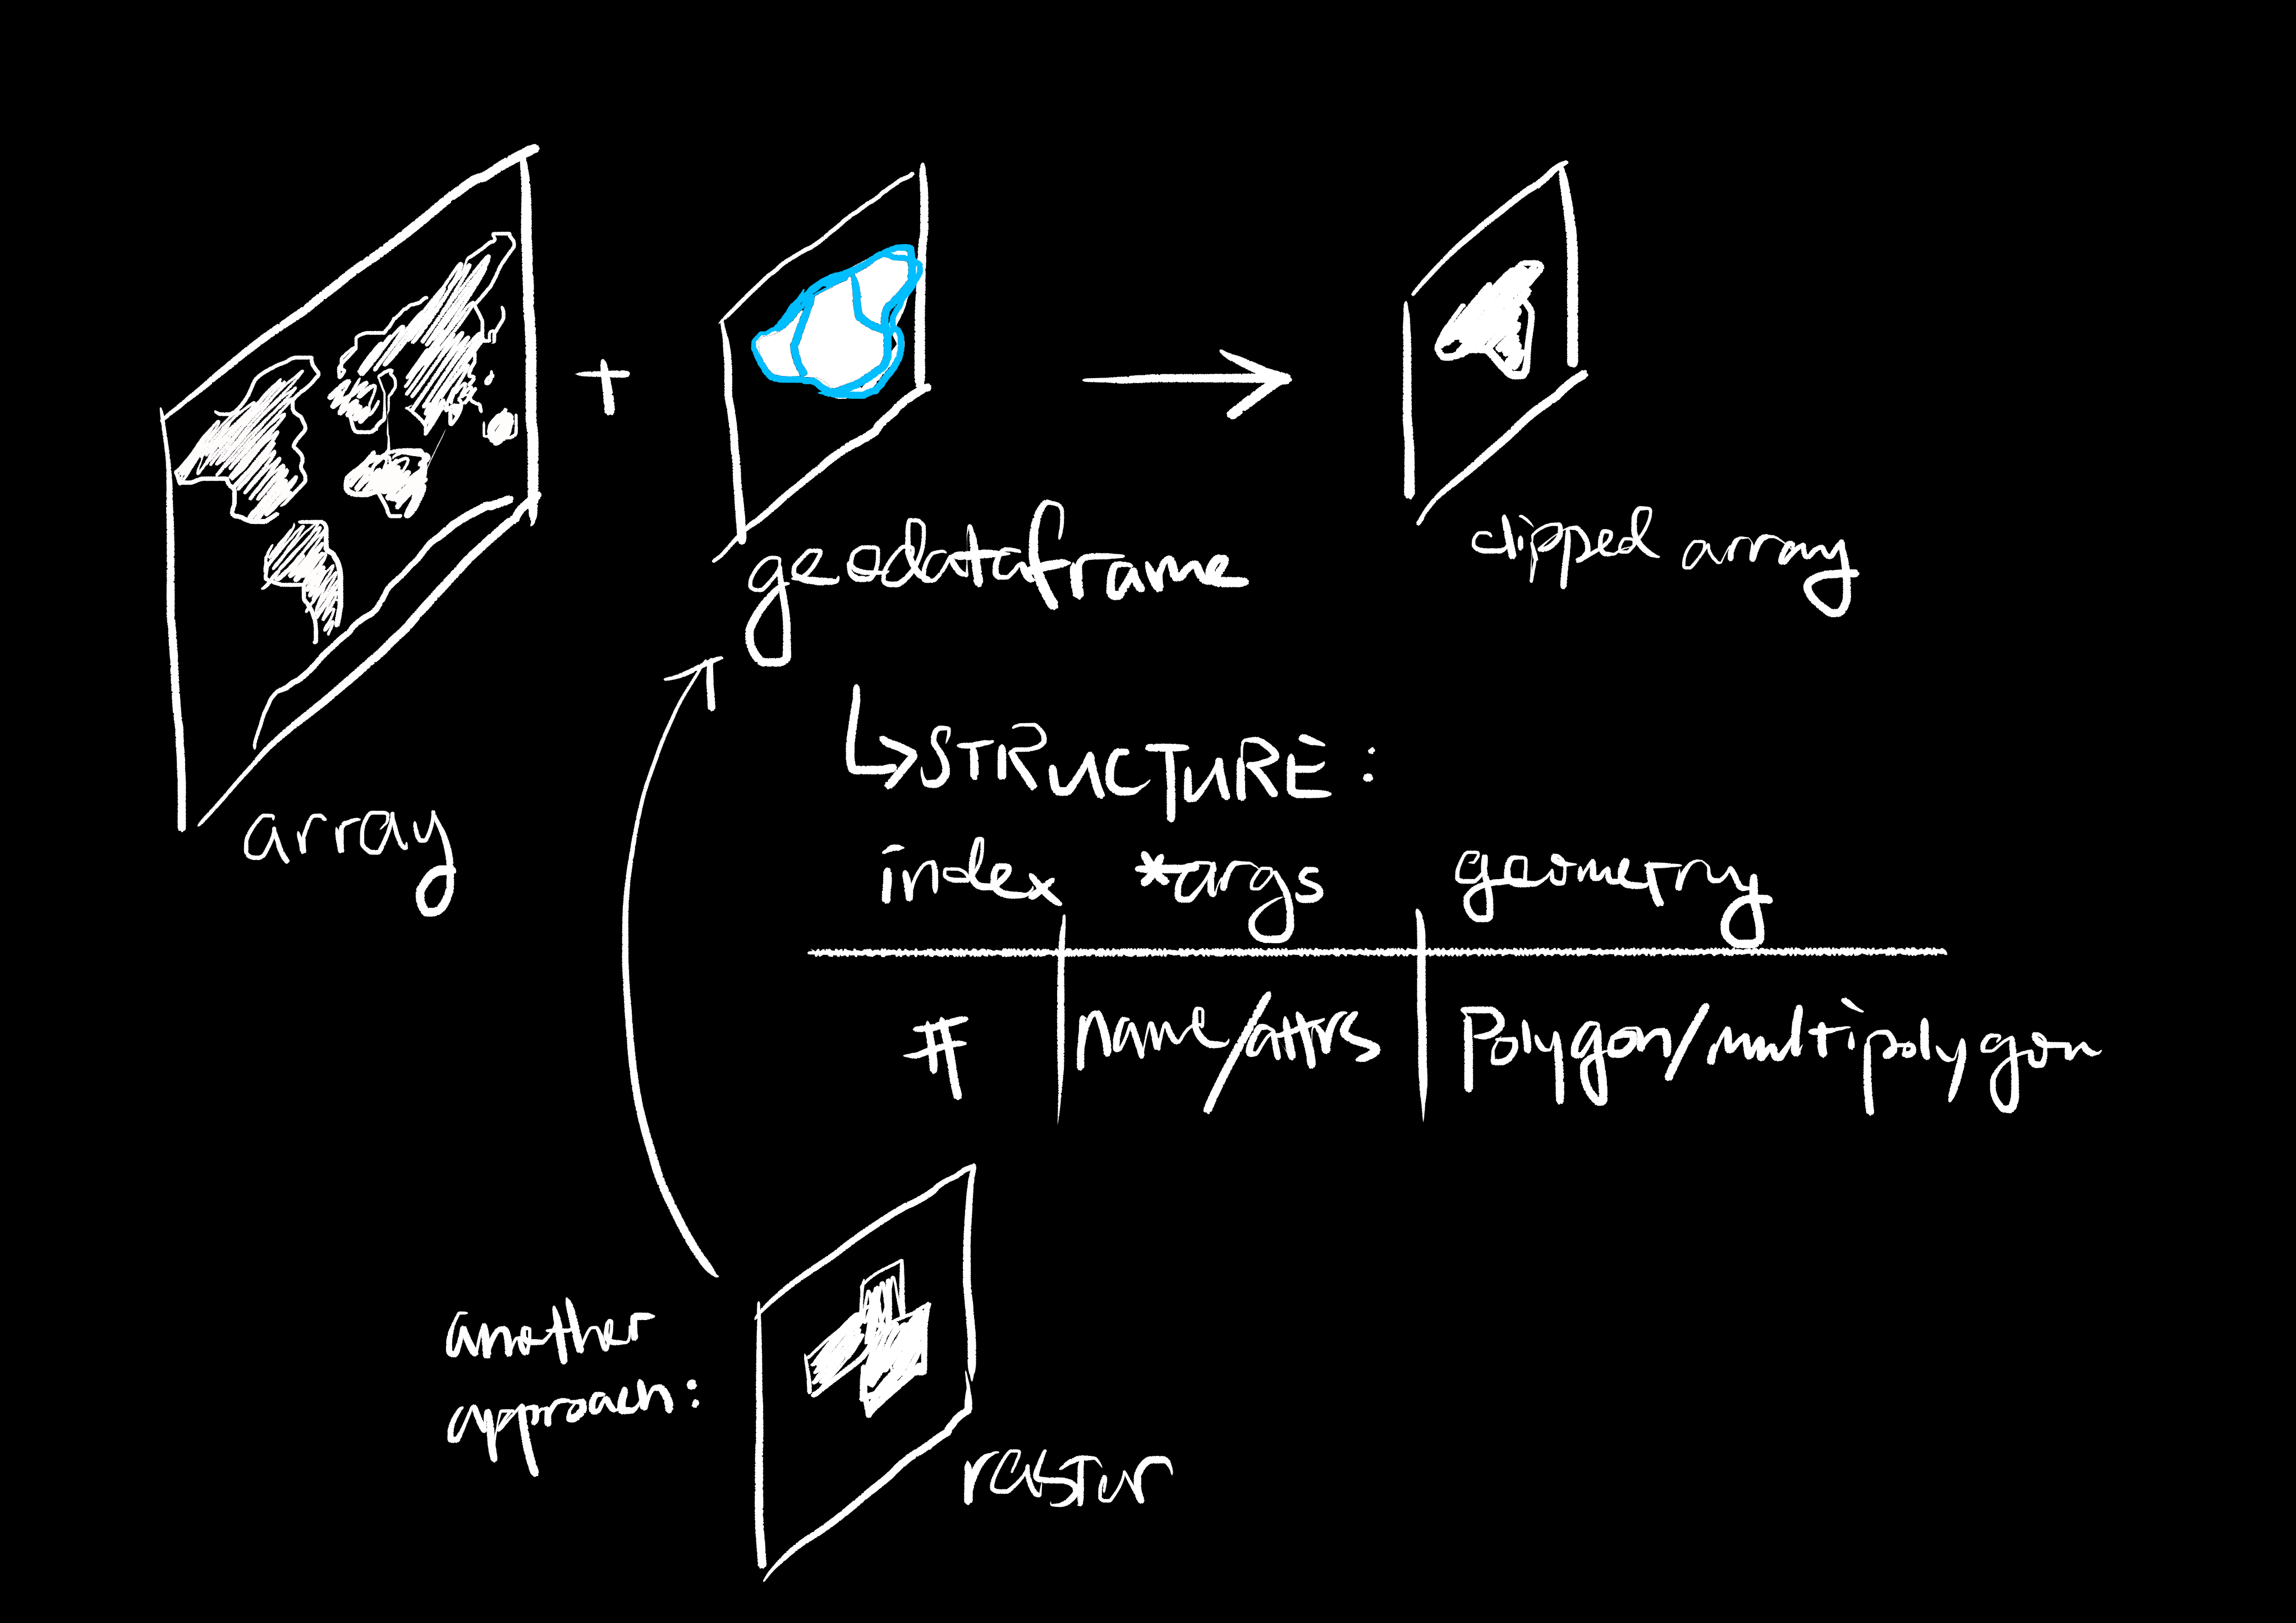 +
geodataframe
clipped array
array
STRUCTURE:
index *args geometry
# name/attrs Polygon/multipolygon
another
approach:
raster